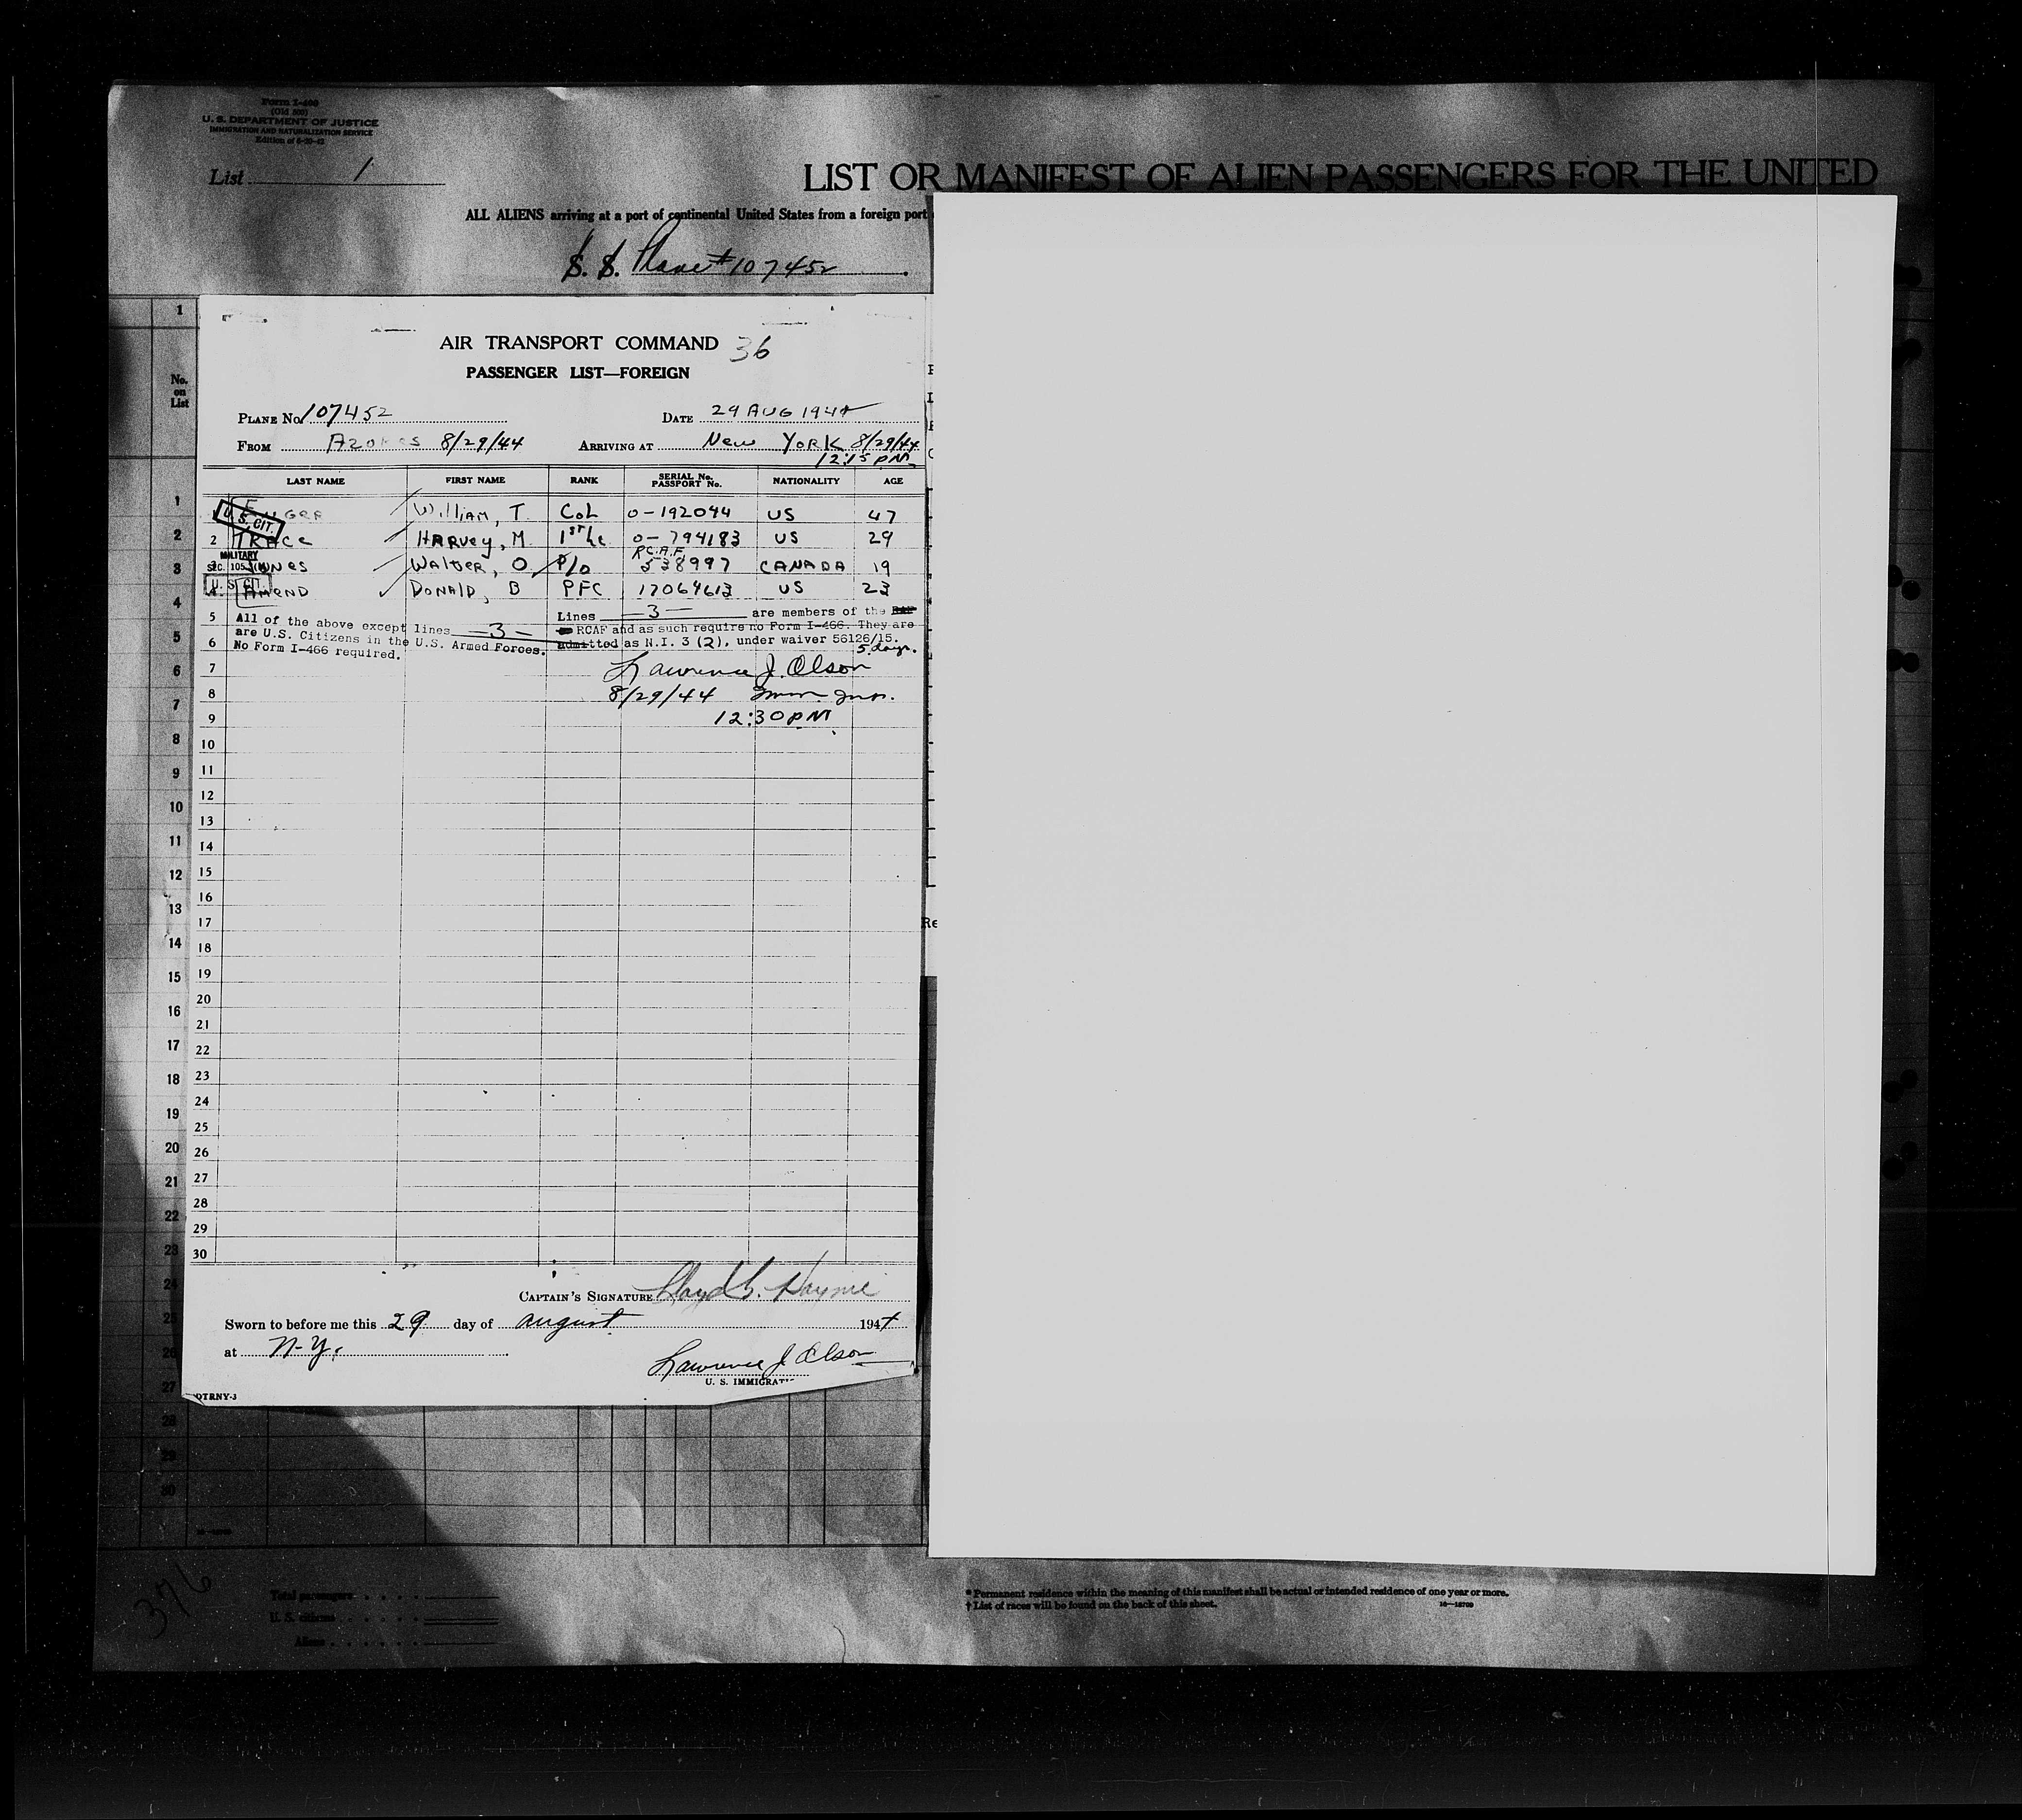 Form I-400
(Old 500)
U. S. DEPARTMENT OF JUSTICE
IMMIGRATION AND NATURALIZATION SERVICE
List 1
LIST OR MANIFEST OF ALIEN PASSENGERS FOR THE UNITED
ALL ALIENS arriving at a port of continental United States from a foreign port
S. S. Plane # 107452
No. on List
AIR TRANSPORT COMMAND 36
PASSENGER LIST—FOREIGN
PLANE No. 107452 DATE 29 AUG 1944
FROM Azores 8/29/44 ARRIVING AT New York 8/29/44
12:15 PM
LAST NAME FIRST NAME RANK SERIAL No. PASSPORT No. NATIONALITY AGE
U. S. CIT. William, T. Col 0-192044 US 47
2 TRACE HARVEY, M. 1st Lt 0-794183 US 29
MILITARY R.C.A.F.
SEC. 105 JONES WALTER, O P/O J38997 CANADA 19
U. S. CIT. AMEND DONALD, B PFC 17064613 US 23
5 All of the above except lines —3— Lines —3— are members of the RAF
are U.S. Citizens in the U.S. Armed Forces. RCAF and as such require no Form I-466. They are
6 No Form I-466 required. admitted as N.I. 3 (2), under waiver 56126/15.
5 days.
7 Lawrence J. Olson
8 8/29/44 Imm Insp.
9 12:30 PM
10
11
12
13
14
15
16
17
18
19
20
21
22
23
24
25
26
27
28
29
30
CAPTAIN'S SIGNATURE
Sworn to before me this 29 day of August 1944
at N.Y.
Lawrence J. Olson
U. S. IMMIGRAT
OTRNY-3
376
Total passengers
U. S. citizens
Aliens
* Permanent residence within the meaning of this manifest shall be actual or intended residence of one year or more.
† List of races will be found on the back of this sheet.